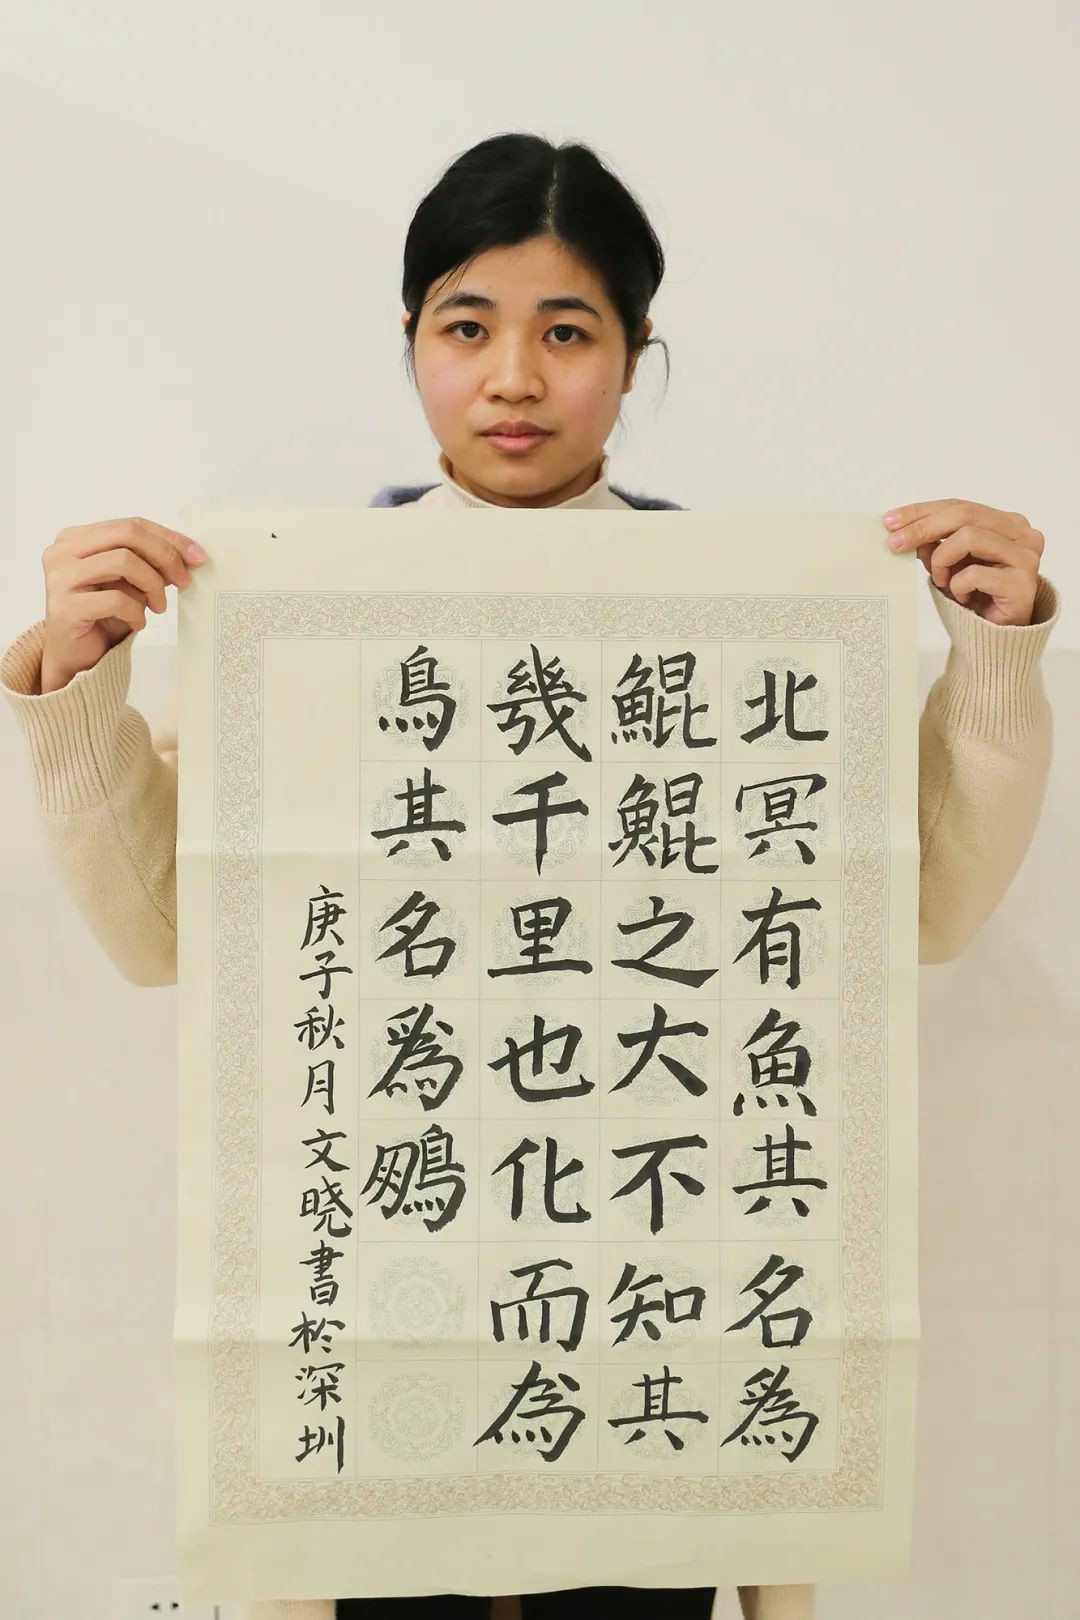 北冥有魚其名爲
鯤鯤之大不知其
幾千里也化而為
鳥其名爲鵬
庚子秋月文晓書於深圳